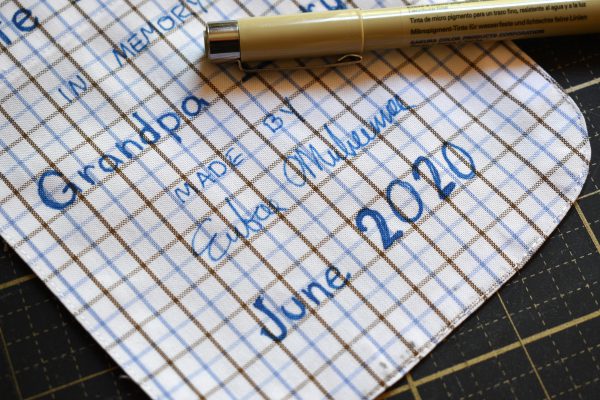 Tinta de micro pigmento para un trazo fino, resistente al agua y a la luz
Mikropigment-Tinte für wasserfeste und lichtechte feine Linien
SAKURA COLOR PRODUCTS CORPORATION
IN MEMORY
Grandpa
MADE BY
June 2020